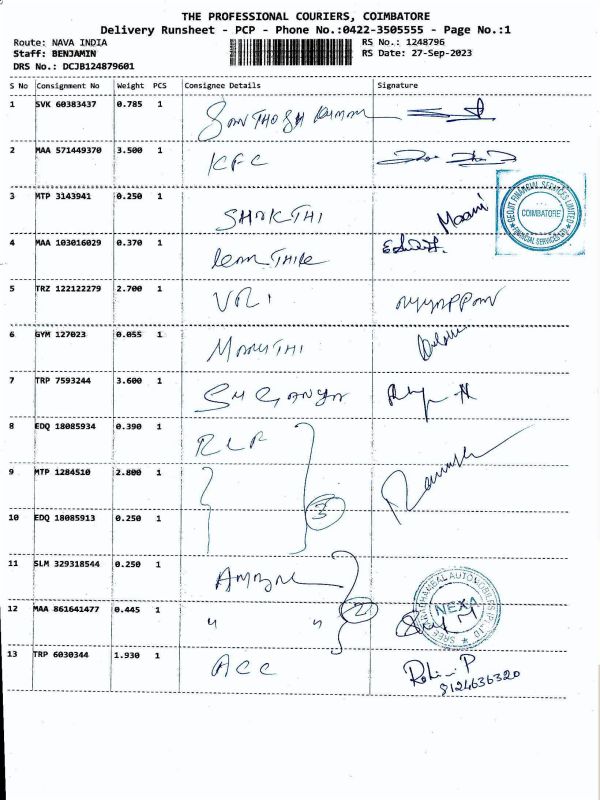 THE PROFESSIONAL COURIERS, COIMBATORE
Delivery Runsheet - PCP - Phone No.:0422-3505555 - Page No.:1
Route: NAVA INDIA
RS No.: 1248796
Staff: BENJAMIN
RS Date: 27-Sep-2023
DRS No.: DCJB124879601
S No Consignment No Weight PCS Consignee Details Signature
1 SVK 60383437 0.785 1
2 MAA 571449370 3.500 1 KFC
3 MTP 3143941 0.250 1 SHAKTHI Maani
GEOJIT FINANCIAL SERVICES LIMITED
COIMBATORE
4 MAA 103016029 0.370 1
5 TRZ 122122279 2.700 1 VRI
6 GYM 127023 0.055 1 MARUTHI
7 TRP 7593244 3.600 1 SUGANYA
8 EDQ 18085934 0.390 1
9 MTP 1284510 2.800 1
3
10 EDQ 18085913 0.250 1
11 SLM 329318544 0.250 1
12 MAA 861641477 0.445 1 " " 2
NEXA
13 TRP 6030344 1.930 1 ACC Rohini P
8124636320